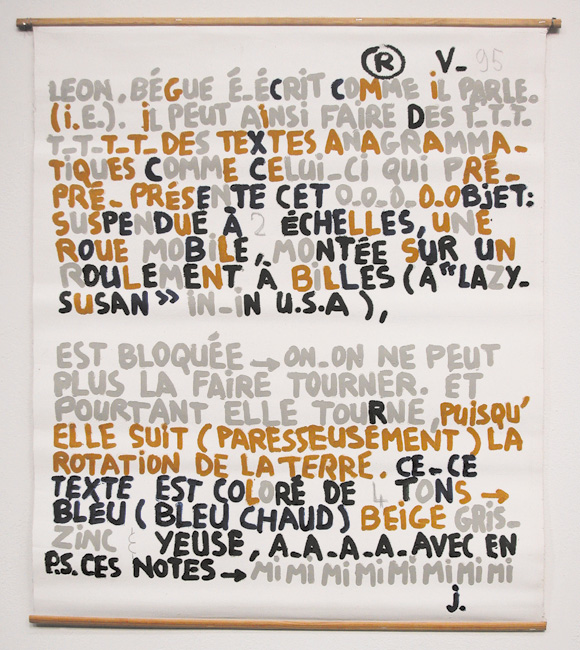 ® V_ 95
LEON. BÉGUE É_ÉCRIT COMME iL PARLE.
(i.E.). iL PEUT AiNSi FAIRE DES T_T_T.
T_T_T_T_DES TEXTES ANAGRAMMA_
TiQUES COMME CELUi_Ci QUi PRÉ_
PRÉ_PRÉSENTE CET O_O_O_O_OBJET:
SUSPENDUE À 2 ÉCHELLES, UNE
ROUE MOBILE, MONTÉE SUR UN
ROULEMENT À BiLLES (À "LAZY_
SUSAN" iN_iN U.S.A),
EST BLOQUÉE → ON_ON NE PEUT
PLUS LA FAIRE TOURNER. ET
POURTANT ELLE TOURNE, PUISQU'
ELLE SUIT (PARESSEUSEMENT) LA
ROTATION DE LA TERRE. CE_CE
TEXTE EST COLORÉ DE 4 TONS →
BLEU (BLEU CHAUD) BEIGE GRIS_
ZINC & YEUSE, A_A_A_A_AVEC EN
P.S. CES NOTES → Mi Mi Mi Mi Mi Mi Mi Mi
j.